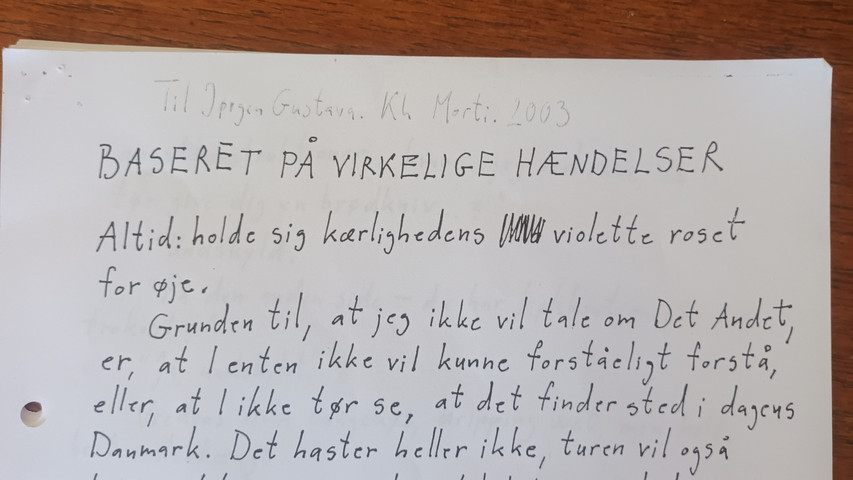 Til Jørgen Gustava. Kh Morti. 2003
BASERET PÅ VIRKELIGE HÆNDELSER
Altid: holde sig kærlighedens violette roset
for øje.
Grunden til, at jeg ikke vil tale om Det Andet,
er, at I enten ikke vil kunne forståeligt forstå,
eller, at I ikke tør se, at det finder sted i dagens
Danmark. Det haster heller ikke, turen vil også